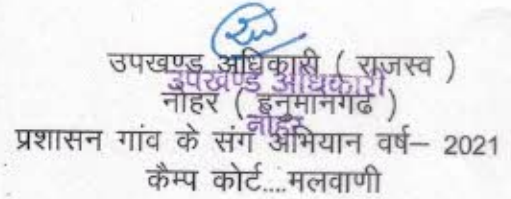 उपखण्ड अधिकारी ( राजस्व )
उपखण्ड अधिकारी
नोहर ( हनुमानगढ )
नोहर
प्रशासन गांव के संग अभियान वर्ष– 2021
कैम्प कोर्ट....मलवाणी